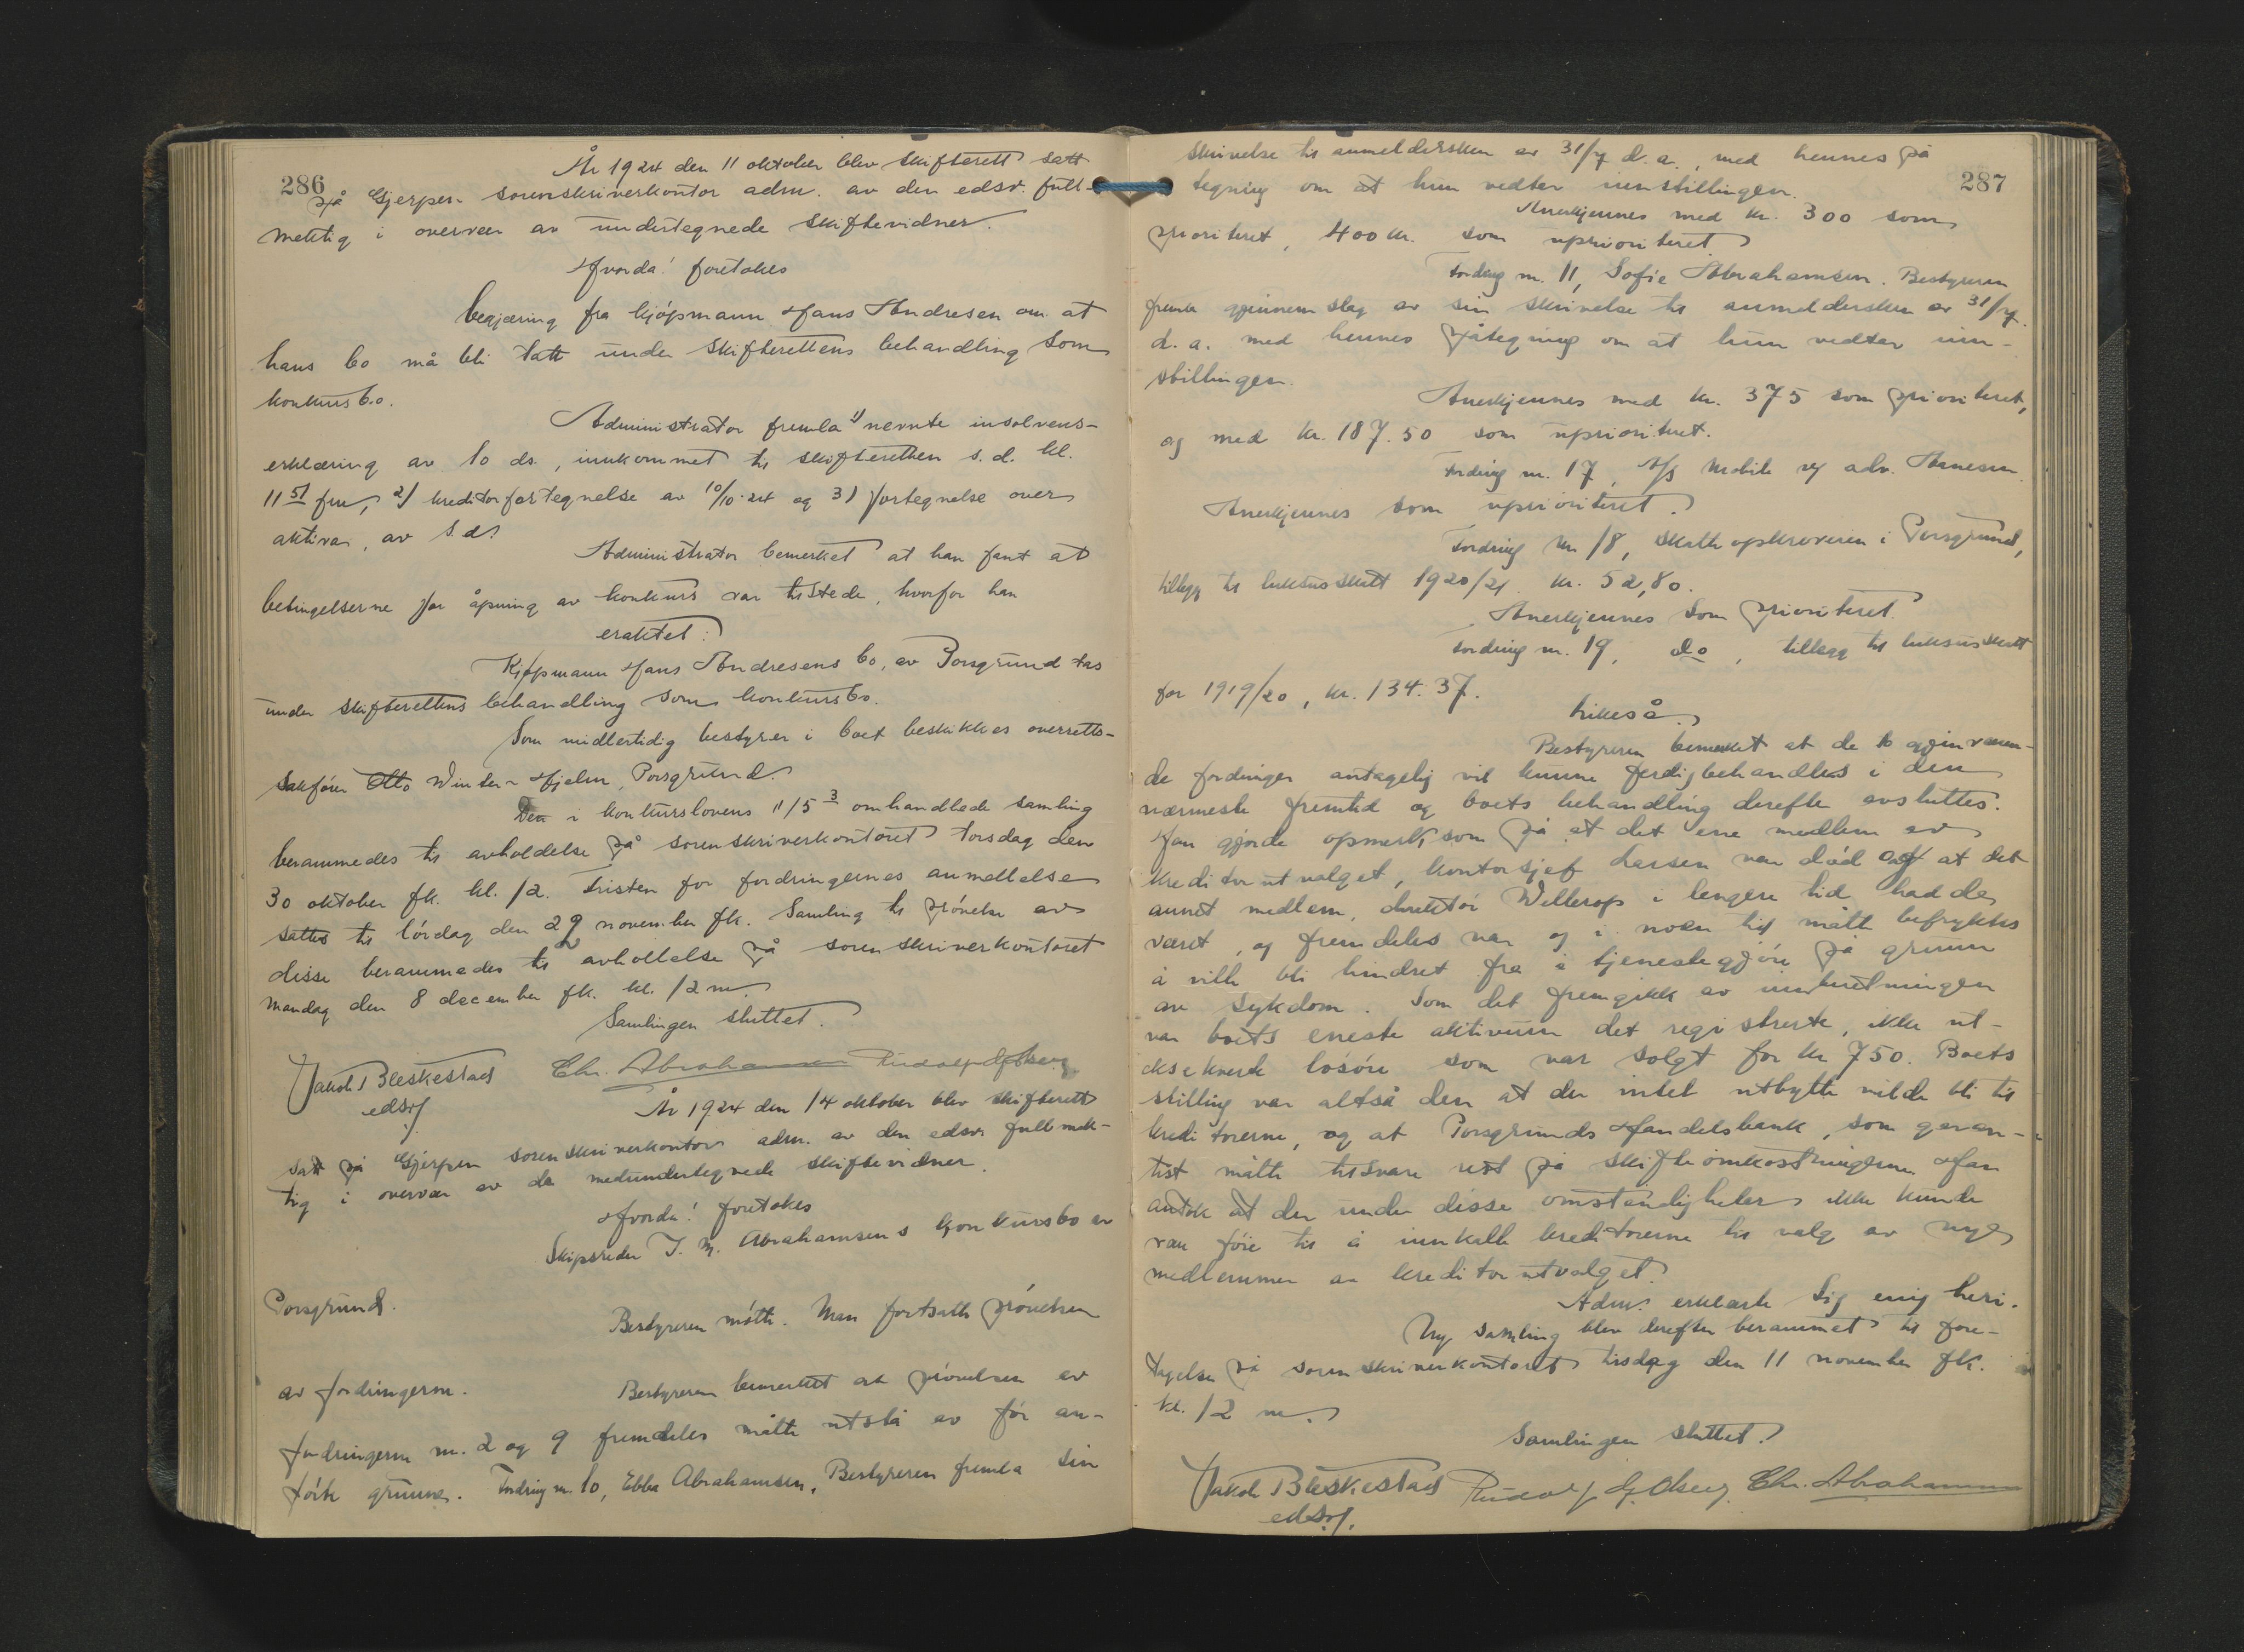 286
År 1924 den 11 oktober blev skifterett satt
på Gjerpen sorenskriverkontor adm. av den edsv. full-
mektig i overvær av undertegnede skiftevidner.
Hvorda! foretokes
begjæring fra kjøpmann Hans Andresen om at
hans bo må bli tatt under skifterettens behandling som
konkursbo.
Administrator fremla 1) nevnte insolvens-
erklæring av 10 ds., innkommet til skifteretten s.d. kl.
11 51 fm, 2) kreditorfortegnelse av 10/10.24 og 3) fortegnelse over
aktiva, av s.d.
Administrator bemerket at han fant at
betingelserne for åpning av konkurs var tilstede, hvorfor han
eraktet:
Kjøpmann Hans Andresens bo, av Porsgrund tas
under skifterettens behandling som konkursbo.
Som midlertidig bestyrer i boet beskikkes overretts-
sakfører Otto Winter-Hjelm, Porsgrund.
Den i konkurslovens § 5 3 omhandlede samling
berammedes til avholdelse på sorenskriverkontoret torsdag den
30 oktober fk. kl. 12. Fristen for fordringernes anmeldelse
sattes til lørdag den 29 november fk. Samling til prøvelse av
disse berammedes til avholdelse på sorenskriverkontoret
mandag den 8 december fk. kl. 12 m.
Samlingen sluttet.
Jakob Bleskestad Chr. Abrahamsen Rudolf G. Olsen
edsvf
År 1924 den 14 oktober blev skifterett
satt på Gjerpen sorenskriverkontor adm. av den edsv. fullmek-
tig i overvær av de medundertegnede skiftevidner.
Hvorda! foretokes
Skipsreder J. M. Abrahamsens konkursbo av
Porsgrund.
Bestyreren møtte. Man fortsatte prøvelsen
av fordringerne.
Bestyreren bemerket at prøvelsen av
fordringerne nr. 2 og 9 fremdeles måtte utstå av før an-
førte grunne. Fordring nr. 10, Ebba Abrahamsen, Bestyreren fremla sin
287
skrivelse til anmeldersken av 31/7 d.a., med hennes på
tegning om at hun vedtar innstillingen.
Anerkjennes med kr. 300 som
prioritert, 400 kr. som uprioritert.
Fordring nr. 11, Sofie Abrahamsen. Bestyreren
fremla gjennemslag av sin skrivelse til anmeldersken av 31/7
d.a. med hennes påtegning om at hun vedtar inn-
stillingen.
Anerkjennes med kr. 375 som prioritert,
og med kr. 187.50 som uprioritert.
Fordring nr. 17, A/S Mobile v/ adv. Hanesen.
Anerkjennes som uprioritert.
Fordring nr 18, Skatteopkreveren i Porsgrund,
tillegg til luksusskatt 1920/21 kr. 52,80.
Anerkjennes som prioritert.
Fordring nr. 19, do, tillegg til luksusskatt
for 1919/20, kr. 134.37.
Likeså.
Bestyreren bemerket at de to gjenværen-
de fordringer antagelig vil kunne ferdigbehandles i den
nærmeste fremtid og boets behandling derefter avsluttes.
Han gjorde opmerksom på at det ene medlem av
kreditorutvalget, kontorsjef Larsen var død og at det
annet medlem, direktør Wellerop i lengere tid hadde
været, og fremdeles var og i noen tid måtte befryktes
å ville bli hindret fra å tjenestegjøre på grunn
av sykdom. Som det fremgikk av innberetningen
var boets eneste aktivum det registrerte, ikke ut-
eksekverte løsøre som var solgt for kr 750. Boets
stilling var altså den at der intet utbytte vilde bli til
kreditorerne, og at Porsgrunds Handelsbank, som garan-
tist måtte tilsvare rest på skifteomkostningerne. Han
antok at der under disse omstændigheter ikke kunde
være føie til å innkalle kreditorerne til valg av nye
medlemmer av kreditorutvalget.
Adm. erklærte sig enig heri.
Ny samling blev derefter berammet til fore-
tagelse på sorenskriverkontoret tirsdag den 11 november fk.
kl. 12 m.
Samlingen sluttet.
Jakob Bleskestad Rudolf G. Olsen Chr. Abrahamsen
edsvf.